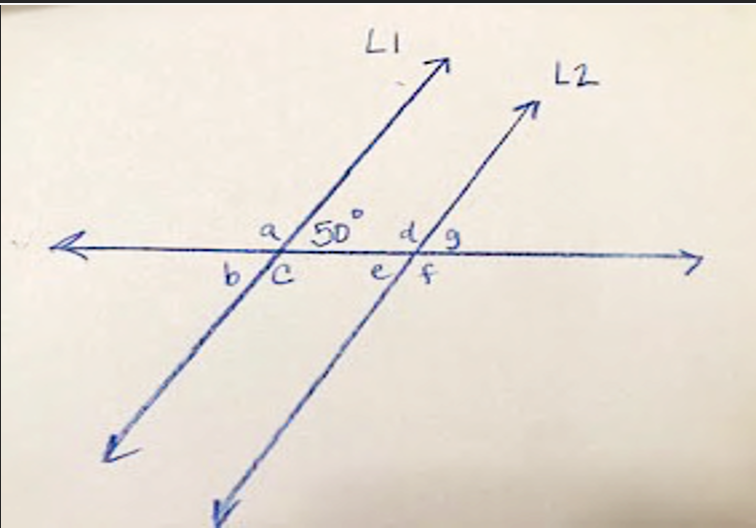 L1
L2
a 50° d g
b c e f